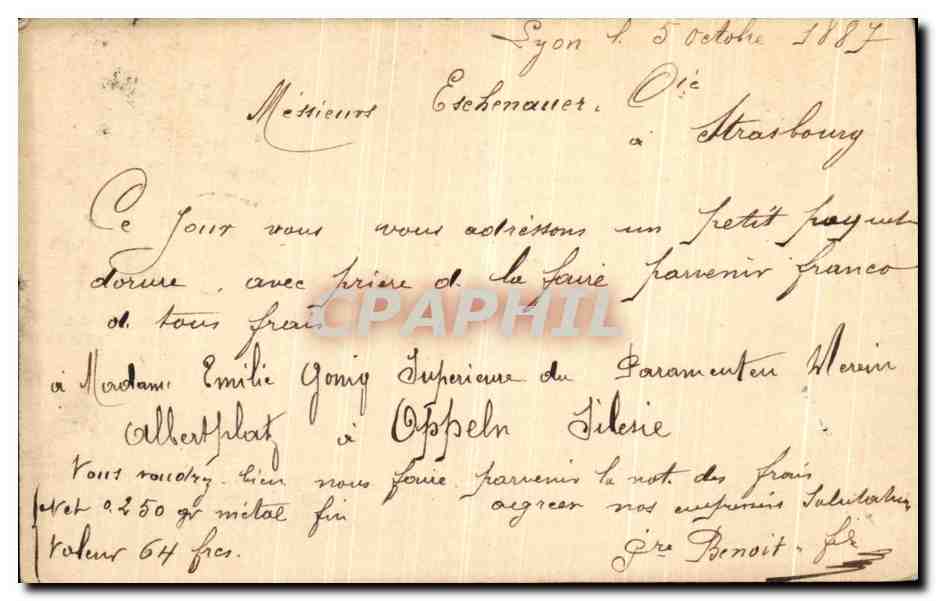 Lyon l. 5 Octobre 1887
Méssieurs Eschenauer. Cie
à Strasbourg
Ce jour vous vous adréssons un petit paquet
dorure, avec prière d. la faire parvenir franco
d. tous frais
à Madame Emilie Gonig Superieure du Paramenten Verein
Albertplatz à Oppeln Silesie
Vous voudrez bien nous faire parvenir la not. des frais
Net 0.250 gr métal fin agreer nos empressés Salutations
Valeur 64 fcs. Benoit. fils
CPAPHIL